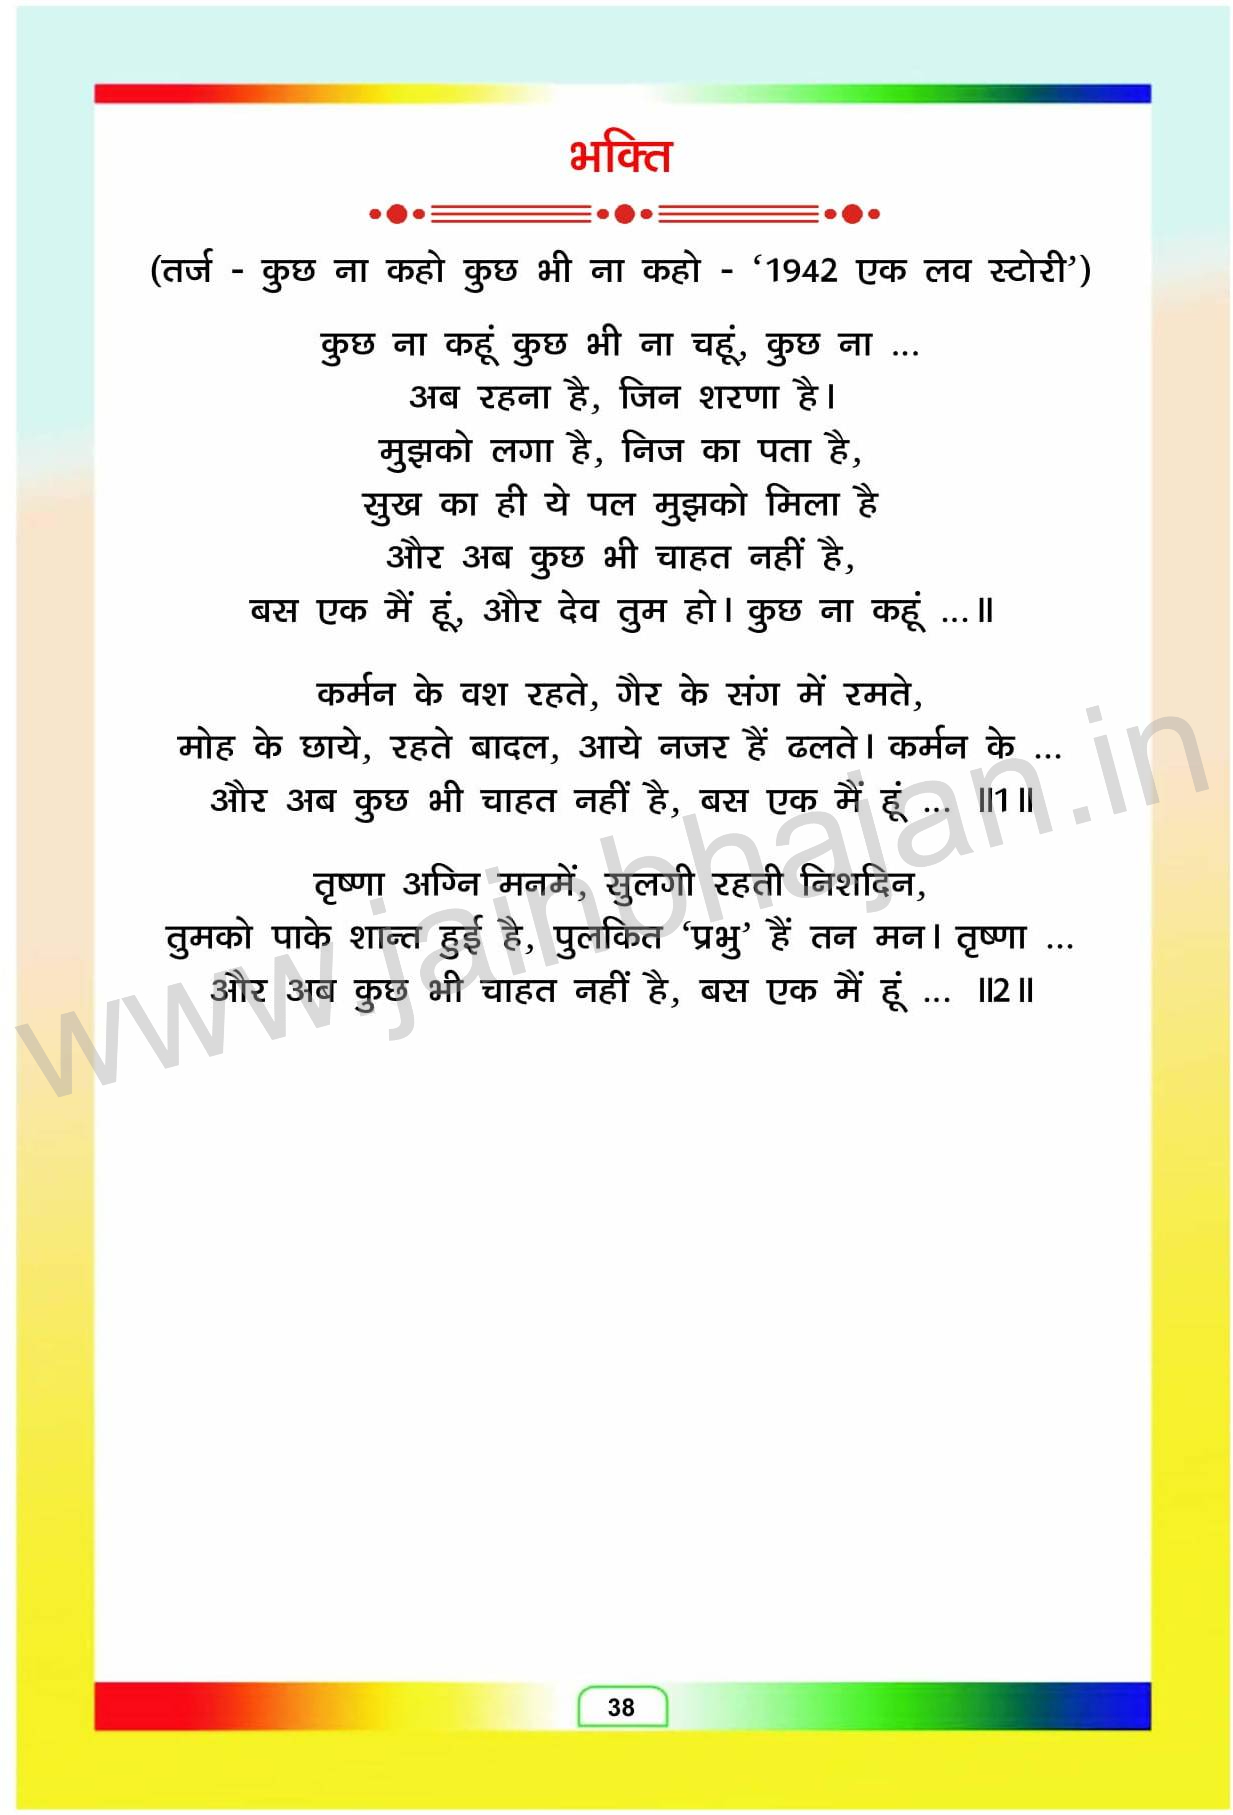 भक्ति
(तर्ज - कुछ ना कहो कुछ भी ना कहो - ‘1942 एक लव स्टोरी’)
कुछ ना कहूं कुछ भी ना चहूं, कुछ ना ...
अब रहना है, जिन शरणा है।
मुझको लगा है, निज का पता है,
सुख का ही ये पल मुझको मिला है
और अब कुछ भी चाहत नहीं है,
बस एक मैं हूं, और देव तुम हो। कुछ ना कहूं ...॥
कर्मन के वश रहते, गैर के संग में रमते,
मोह के छाये, रहते बादल, आये नजर हैं ढलते। कर्मन के ...
और अब कुछ भी चाहत नहीं है, बस एक मैं हूं ... ॥1॥
तृष्णा अग्नि मनमें, सुलगी रहती निशदिन,
तुमको पाके शान्त हुई है, पुलकित ‘प्रभु’ हैं तन मन। तृष्णा ...
और अब कुछ भी चाहत नहीं है, बस एक मैं हूं ... ॥2॥
www.jainbhajan.in
38